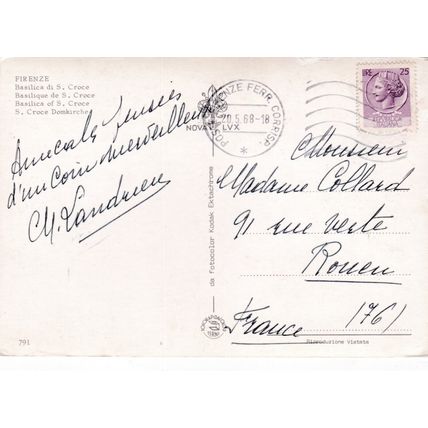 FIRENZE
Basilica di S. Croce
Basilique de S. Croce
Basilica of S. Croce
S. Croce Domkirche
Amicales Pensées
d'un Coin merveilleux
M. Landrieu
NOVA
LVX
FERR. CORRISP.
20.5.68-18
*
25
Monsieur
Madame Collard
91 rue verte
Rouen
(76)
France
da Fotocolor Kodak Ektachrome
791
Riproduzione Vietata